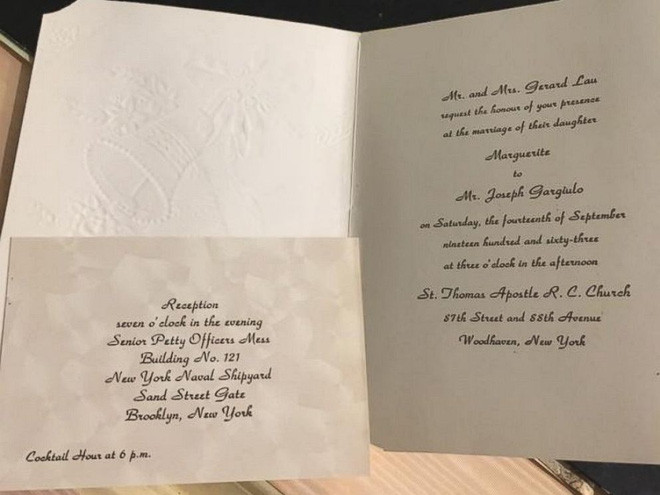 Mr. and Mrs. Gerard Lau
request the honour of your presence
at the marriage of their daughter
Marguerite
to
Mr. Joseph Gargiulo
on Saturday, the fourteenth of September
nineteen hundred and sixty-three
at three o'clock in the afternoon
St. Thomas Apostle R. C. Church
87th Street and 88th Avenue
Woodhaven, New York
Reception
seven o'clock in the evening
Senior Petty Officers Mess
Building No. 121
New York Naval Shipyard
Sand Street Gate
Brooklyn, New York
Cocktail Hour at 6 p.m.